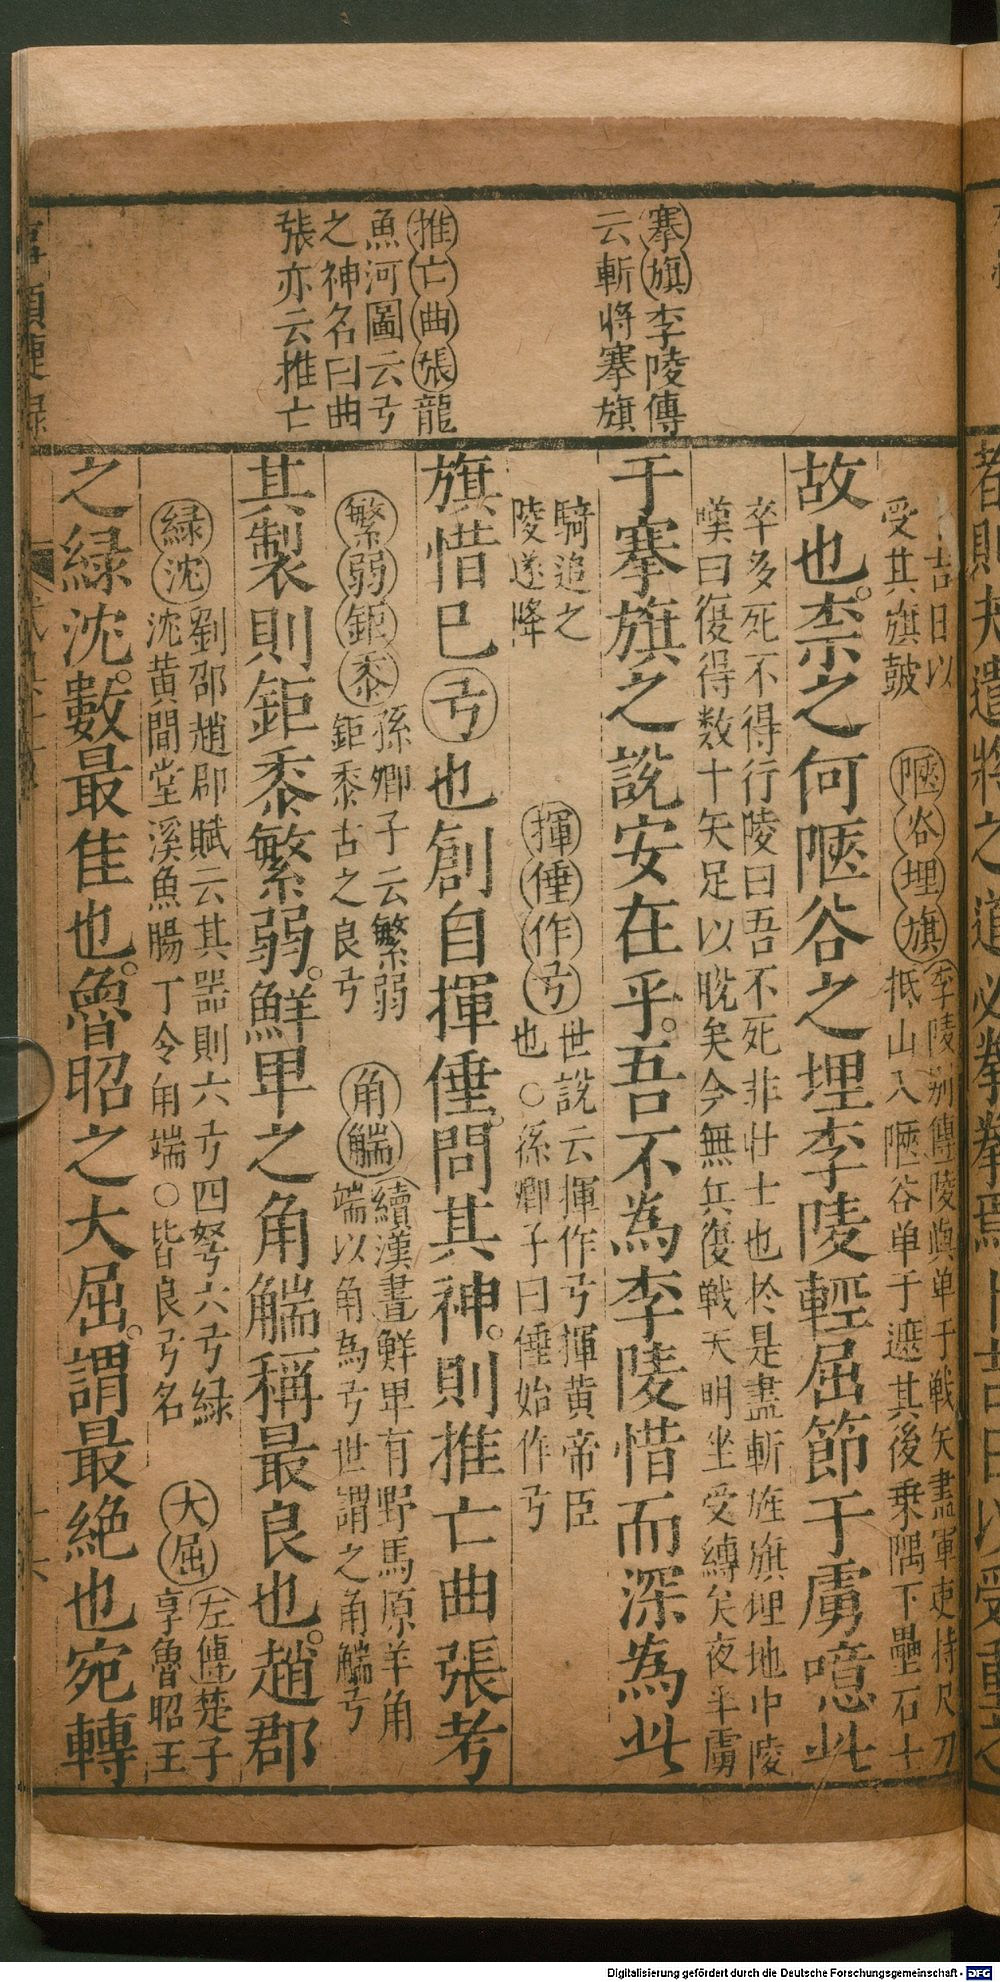 搴旗李陵傳
云斬將搴旗
推亡曲張龍
魚河圖云弓
之神名曰曲
張亦云推亡
吉日以
受其旗鼓
陿谷埋旗
李陵别傳陵與单于戦矢盡軍吏持尺刀
抵山入陿谷单于遮其後乗隅下壘石士
故也柰之何陿谷之埋李陵輕屈節于虜噫此
卒多死不得行陵曰吾不死非壮士也於是盡斬旌旗埋地中陵
嘆曰復得数十矢足以脱矣今無兵復戦天明坐受縛矣夜半虜
于搴旗之說安在乎吾不為李陵惜而深為此
騎追之
陵遂降
揮倕作弓
世説云揮作弓揮黄帝臣
也○孫卿子曰倕始作弓
旗惜巳弓也創自揮倕問其神則推亡曲張考
繁弱鉅黍
孫卿子云繁弱
鉅黍古之良弓
角觿
續漢書鮮卑有野馬原羊角
端以角為弓世謂之角觿弓
其製則鉅黍繁弱鮮卑之角觿稱最良也趙郡
緑沈
劉邵趙郡賦云其器則六弓四弩六弓緑
沈黄間堂溪魚膓丁令角端○皆良弓名
大屈
左傳楚子
享魯昭王
之緑沈數最隹也魯昭之大屈謂最絶也宛轉
Digitalisierung gefördert durch die Deutsche Forschungsgemeinschaft - DFG